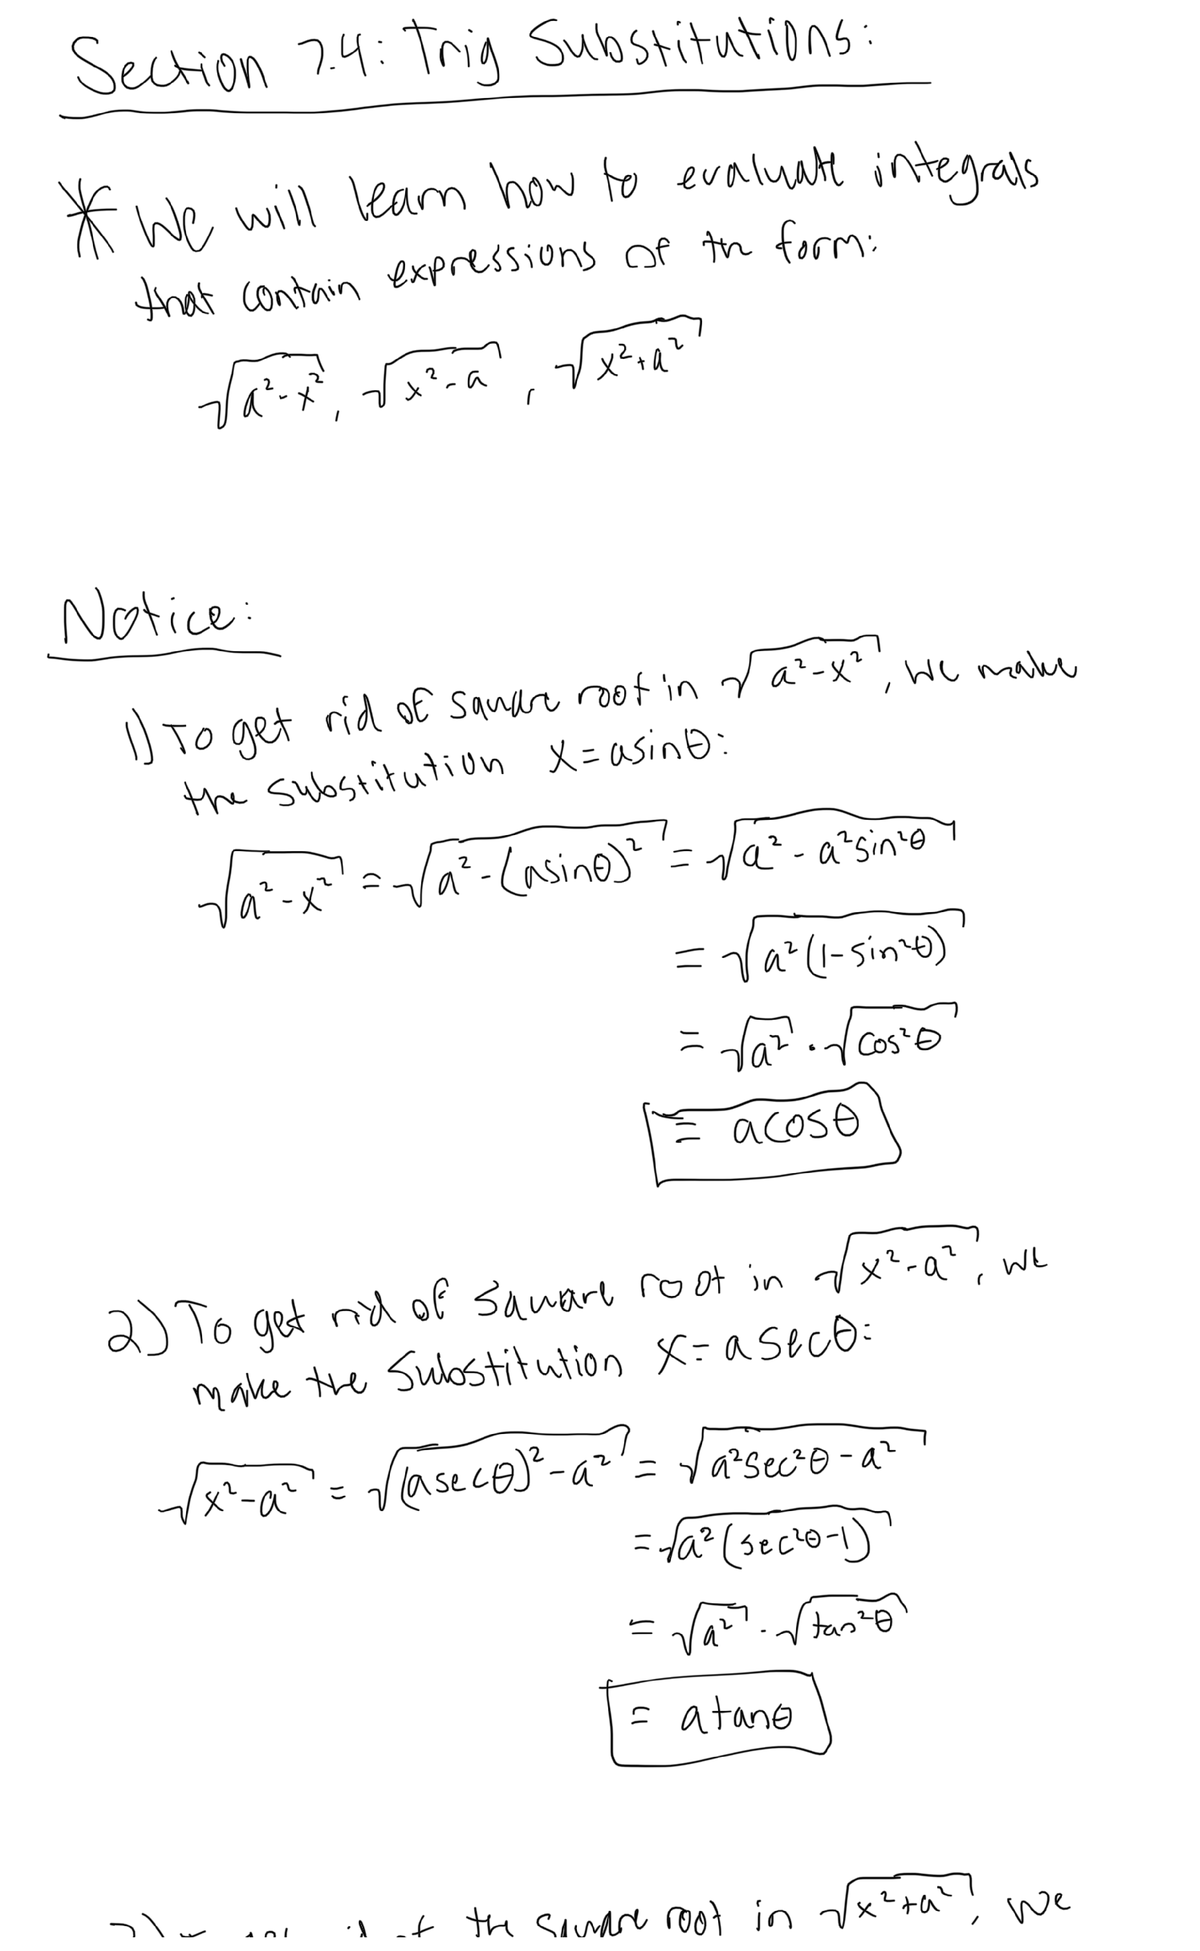 Section 7.4: Trig Substitutions:
* We will learn how to evaluate integrals
that contain expressions of the form:
√(a²-x²), √(x²-a), √(x²+a²)
Notice:
1) To get rid of square root in √(a²-x²), we make
the substitution x=asinθ:
√(a²-x²) = √(a²-(asinθ)²) = √(a²-a²sin²θ)
= √(a²(1-sin²θ))
= √(a²) · √(cos²θ)
= acosθ
2) To get rid of square root in √(x²-a²), we
make the substitution x=asecθ:
√(x²-a²) = √((asecθ)²-a²) = √(a²sec²θ-a²)
= √(a²(sec²θ-1))
= √(a²) · √(tan²θ)
= atanθ
the square root in √(x²+a²), we